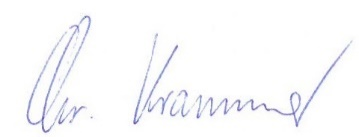 Chr. Krammer